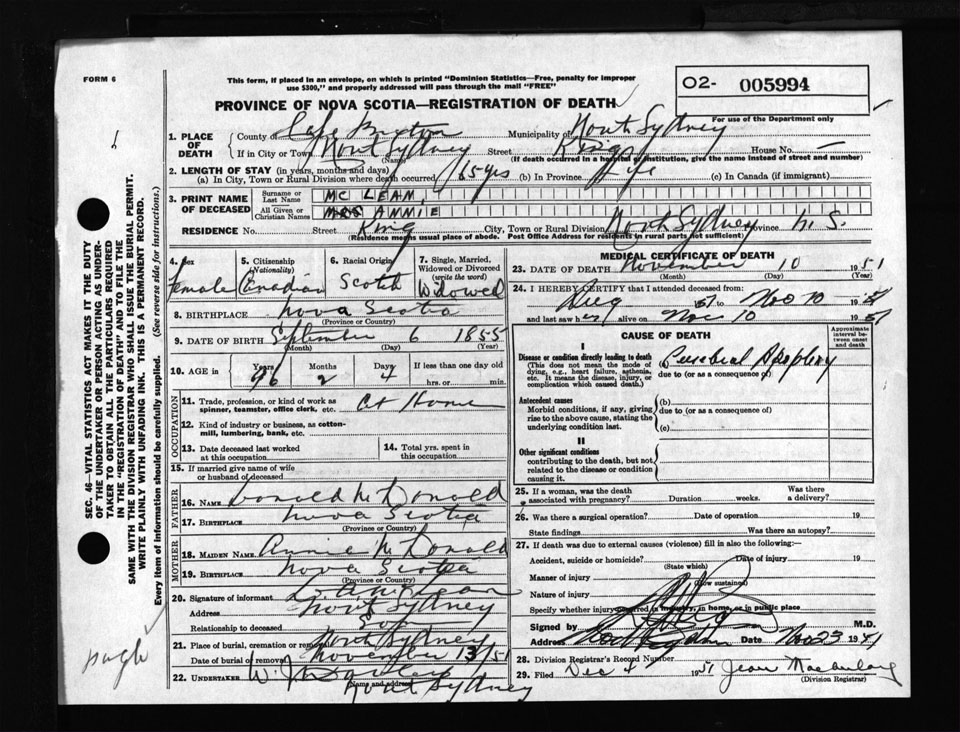 FORM 6
This form, if placed in an envelope, on which is printed "Dominion Statistics—Free, penalty for improper
use $300," and properly addressed will pass through the mail "FREE"
O2- 005994
For use of the Department only
PROVINCE OF NOVA SCOTIA—REGISTRATION OF DEATH
1. PLACE OF DEATH County of Cape Breton Municipality of North Sydney
If in City or Town North Sydney (Name) Street King House No. —
(If death occurred in a hospital or institution, give the name instead of street and number)
2. LENGTH OF STAY (in years, months and days)
(a) In City, Town or Rural Division where death occurred 65 yrs (b) In Province Life (c) In Canada (if immigrant)
3. PRINT NAME OF DECEASED Surname or Last Name MC LEAN,
All Given or Christian Names MRS ANNIE
RESIDENCE No. Street King City, Town or Rural Division North Sydney Province N. S.
(Residence means usual place of abode. Post Office Address for residents in rural parts not sufficient)
4. Sex female
5. Citizenship (Nationality) Canadian
6. Racial Origin Scotch
7. Single, Married, Widowed or Divorced (write the word) Widowed
8. BIRTHPLACE Nova Scotia
(Province or Country)
9. DATE OF BIRTH September 6 1855
(Month) (Day) (Year)
10. AGE in Years 96 Months 2 Days 4 If less than one day old
hrs. or min.
OCCUPATION
11. Trade, profession, or kind of work as spinner, teamster, office clerk, etc. At Home
12. Kind of industry or business, as cotton-mill, lumbering, bank, etc.
13. Date deceased last worked at this occupation
14. Total yrs. spent in this occupation
15. If married give name of wife or husband of deceased
FATHER
16. NAME Donald McDonald
17. BIRTHPLACE Nova Scotia
(Province or Country)
MOTHER
18. MAIDEN NAME Annie McDonald
19. BIRTHPLACE Nova Scotia
(Province or Country)
20. Signature of informant
Address North Sydney
Relationship to deceased Son
21. Place of burial, cremation or removal North Sydney
Date of burial or removal November 13/51
22. UNDERTAKER W. J.
(Name and address) North Sydney
MEDICAL CERTIFICATE OF DEATH
23. DATE OF DEATH November 10 1951
(Month) (Day) (Year)
24. I HEREBY CERTIFY that I attended deceased from:
1951 to Nov 10 1951
and last saw her alive on Nov 10 1951
CAUSE OF DEATH
Approximate interval between onset and death
I
Disease or condition directly leading to death
(This does not mean the mode of dying, e.g., heart failure, asthenia, etc. It means the disease, injury, or complication which caused death.)
(a) Cerebral Apoplexy
due to (or as a consequence of)
Antecedent causes
Morbid conditions, if any, giving rise to the above cause, stating the underlying condition last.
(b)
due to (or as a consequence of)
(c)
II
Other significant conditions
contributing to the death, but not related to the disease or condition causing it.
25. If a woman, was the death associated with pregnancy? Duration weeks. Was there a delivery?
26. Was there a surgical operation? Date of operation 19
State findings Was there an autopsy?
27. If death was due to external causes (violence) fill in also the following:—
Accident, suicide or homicide? Date of injury 19
(State which)
Manner of injury
(How sustained)
Nature of injury
Specify whether injury occurred in industry, in home, or in public place
Signed by M.D.
Address Date Nov 23 1951
28. Division Registrar's Record Number
29. Filed Dec 4 1951 Jean
(Division Registrar)
SEC. 46—VITAL STATISTICS ACT MAKES IT THE DUTY
OF THE UNDERTAKER OR PERSON ACTING AS UNDER-
TAKER TO OBTAIN ALL THE PARTICULARS REQUIRED
IN THE "REGISTRATION OF DEATH" AND TO FILE THE
SAME WITH THE DIVISION REGISTRAR WHO SHALL ISSUE THE BURIAL PERMIT.
WRITE PLAINLY WITH UNFADING INK. THIS IS A PERMANENT RECORD.
Every item of information should be carefully supplied. (See reverse side for instructions.)